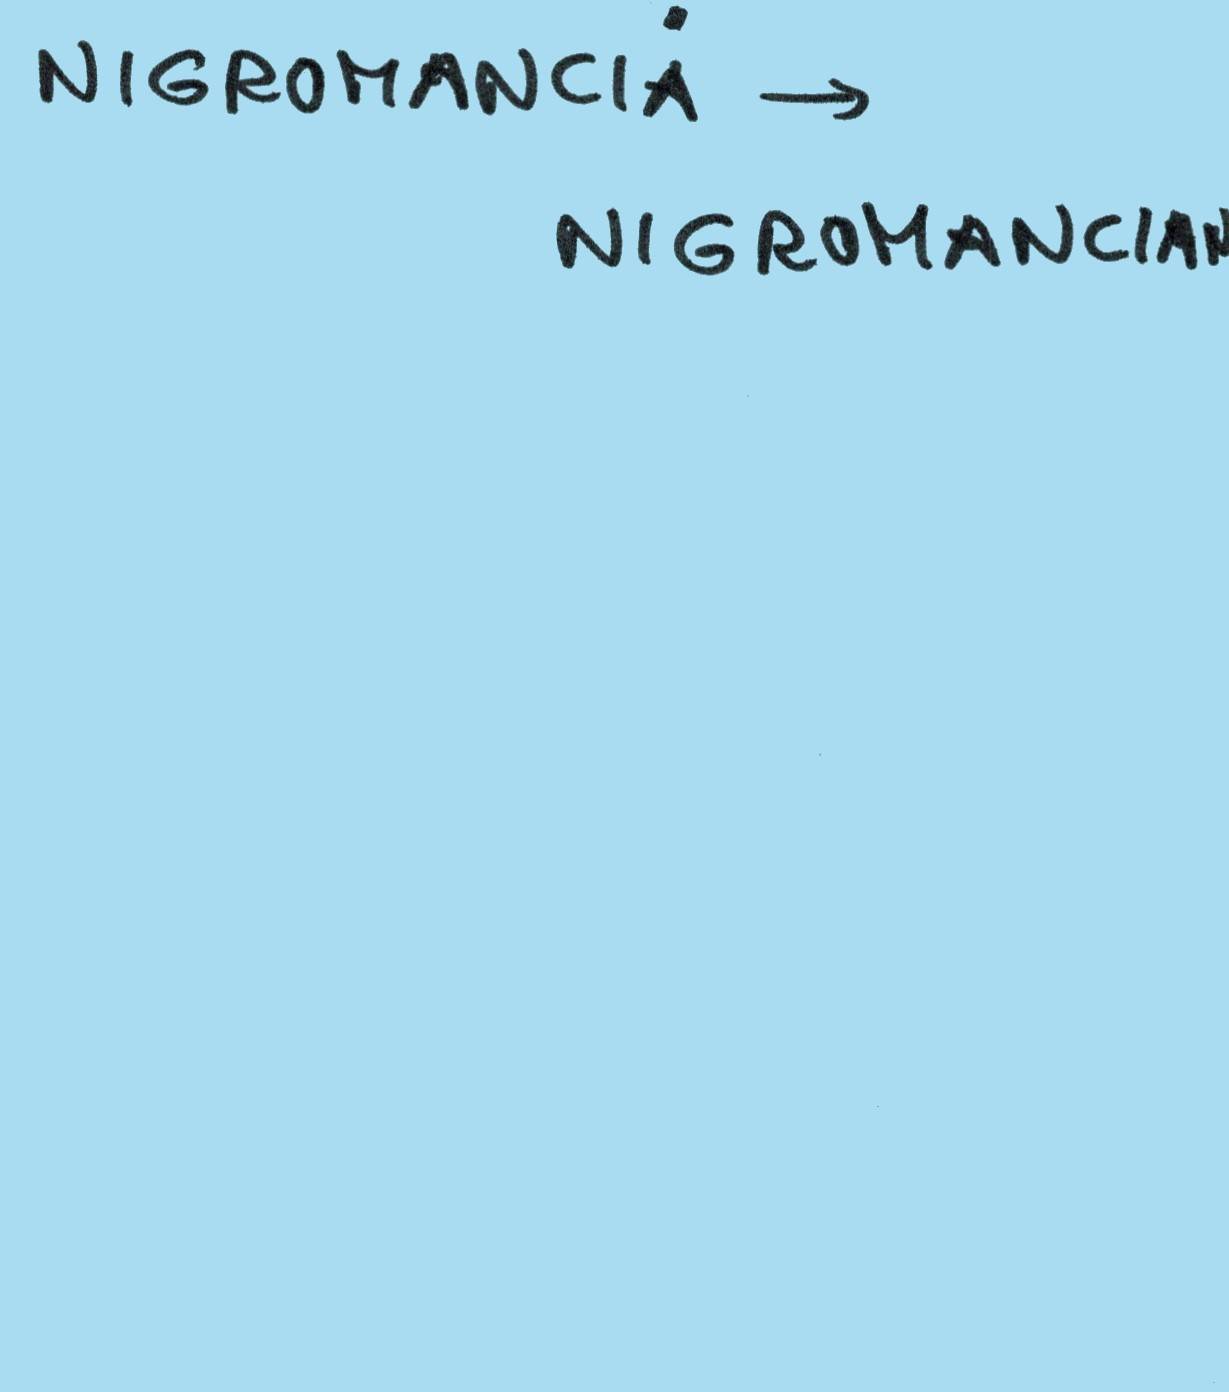 NIGROMANCIȦ →
NIGROMANCIAN